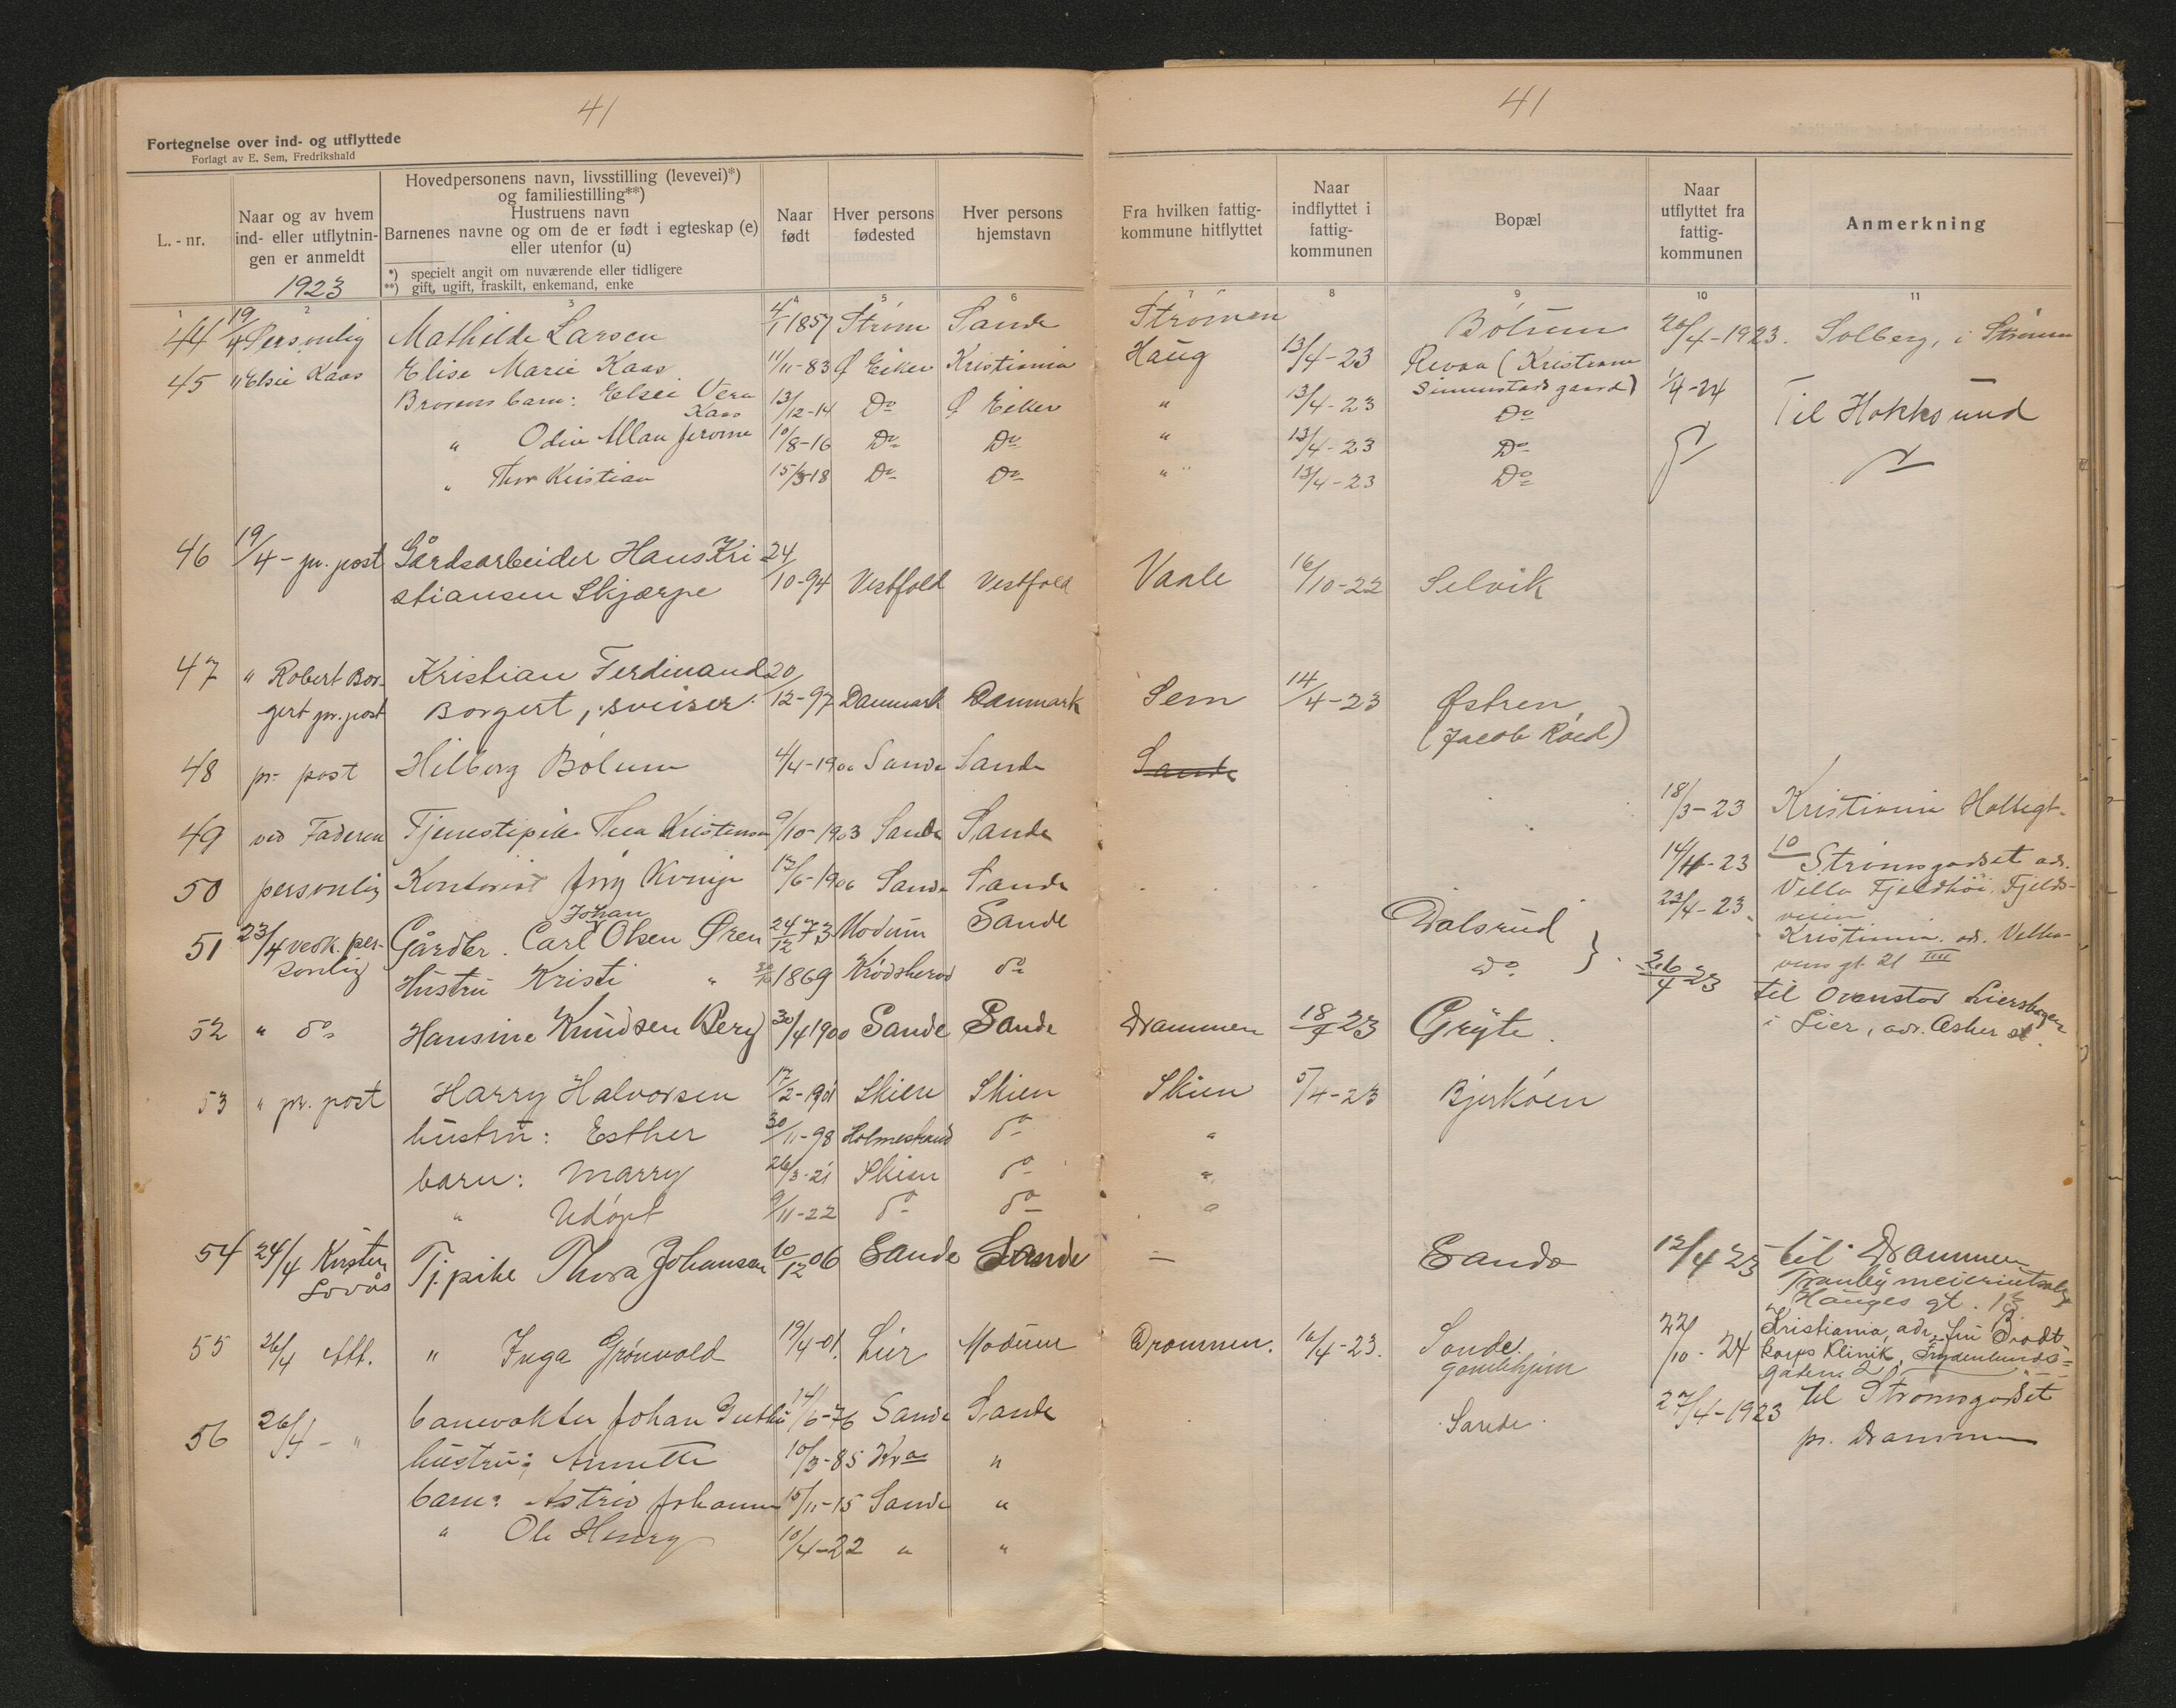 41
41
Fortegnelse over ind- og utflyttede
Forlagt av E. Sem, Fredrikshald
L. - nr.
Naar og av hvem ind- eller utflytnin- gen er anmeldt
1923
Hovedpersonens navn, livsstilling (levevei)*) og familiestilling**) Hustruens navn Barnenes navne og om de er født i egteskap (e) eller utenfor (u)
*) specielt angit om nuværende eller tidligere
**) gift, ugift, fraskilt, enkemand, enke
Naar født
Hver persons fødested
Hver persons hjemstavn
Fra hvilken fattig- kommune hitflyttet
Naar indflyttet i fattig- kommunen
Bopæl
Naar utflyttet fra fattig- kommunen
Anmerkning
1 2 3 4 5 6 7 8 9 10 11
44 19/4 Personlig Mathilde Larsen 4/1 1857 Strøm Sande Strømm Bölum 20/4-1923. Solberg, i Strømm
45 " Elsie Kaas Elise Marie Kaas 11/11-83 Ø Eiker Kristiania Haug 13/4-23 Revaa (Kristian
Simenstads gaard) 1/4-24 Til Hokksund
Brorens barn: Elsei Vera Kaas 13/12-14 Do Ø Eiker " 13/4-23 Do
" Odin Allan Jerome 10/8-16 Do Do " 13/4-23 Do
" Thor Kristian 15/3-18 Do Do " 13/4-23 Do
46 19/4 - pr. post Gårdsarbeider Hans Kri- 24/
stiansen Skjærpe 10-94 Vestfold Vestfold Vaale 16/10-22 Selvik
47 " Robert Bor- Kristian Ferdinand 20/
gert pr. post Borgert, sveiser. 12-97 Danmark Danmark Sem 14/4-23 Østren
(Jacob Röed)
48 pr. post Hilborg Bölum 4/4-1900 Sande Sande Sande 18/3-23 Kristiania Holtegt.
10
49 ved Faderen Tjenestepike Thea Kristensen 9/10-1903 Sande Sande 14/4-23 Strømsgodset ad.
Villa Fjeldhöi, Fjelds-
veien
50 personlig Kontorist 17/6-1906 Sande Sande 22/4-23. Kristiania. ad.
gt. 21 IIII
51 23/4 vedk. per- Gårdbr. Carl Johan Olsen Øren 24/12 73 Modum Sande Dalsrud
sonlig Hustru Kristi " 1869 Krödsherad do do } 26/4 23 til Ovenstad Lierskogen
i Lier, adr. Asker st.
52 " do Hansine Knudsen Berg 30/4 1900 Sande Sande Drammen 18/4 23 Gryte.
53 " pr. post Harry Halvorsen 17/2-1901 Skien Skien Skien 5/4-23 Bjerköen
hustru: Esther 30/11-98 Holmestrand do "
barn: Marry 26/3-21 Skien do "
" Udöpt 9/11-22 do do "
54 24/4 Kirsten Lovås Tj.pike Thora Johansen 10/12 06 Sande Sande — Sande 12/4 23 til Drammen
Tranby meieriutsalg
Hauges gt. 13
55 26/4 Att. " Inga Grönvold 19/4-01 Lier Modum Drammen. 16/4-23. Sande gamlehjem 22/10-24 Kristiania, adr. Brodt-
korps Klinik, Frydenlunds-
gaten. 2
56 26/4 - " banevokter Johan 14/6-76 Sande Sande Sande 27/4-1923 til Strømsgodset
pr. Drammen
hustru: Annette 10/3-85 Kra "
barn: Astrid Johanne 15/11-15 Sande "
" Ole Henry 10/4-22 " "